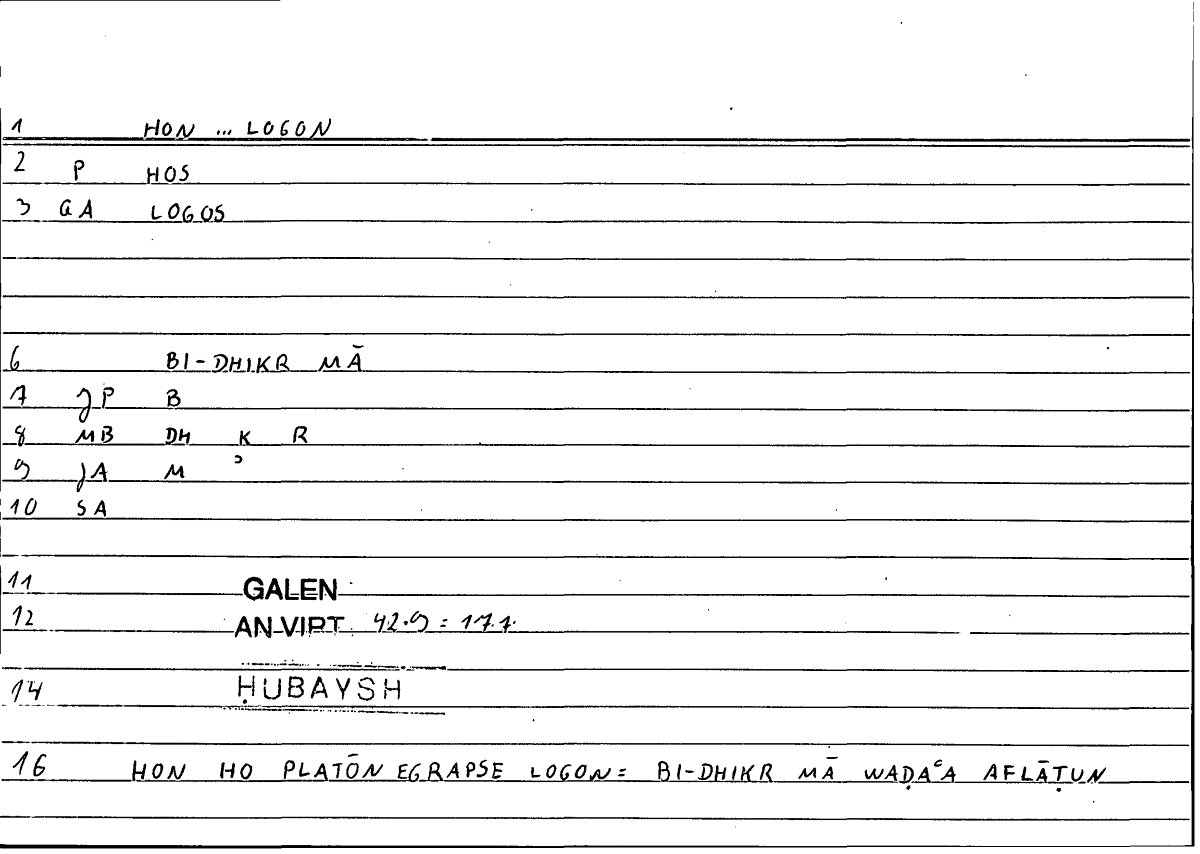 1 HON ... LOGON
2 P HOS
3 GA LOGOS
6 BI-DHIKR MĀ
7 JP B
8 MB DH K R
9 JA M ʾ
10 SA
11 GALEN
12 AN.VIRT. 42.9 = 17.7.
14 ḤUBAYSH
16 HON HO PLATŌN EGRAPSE LOGON = BI-DHIKR MĀ WAḌAʿA AFLĀṬUN